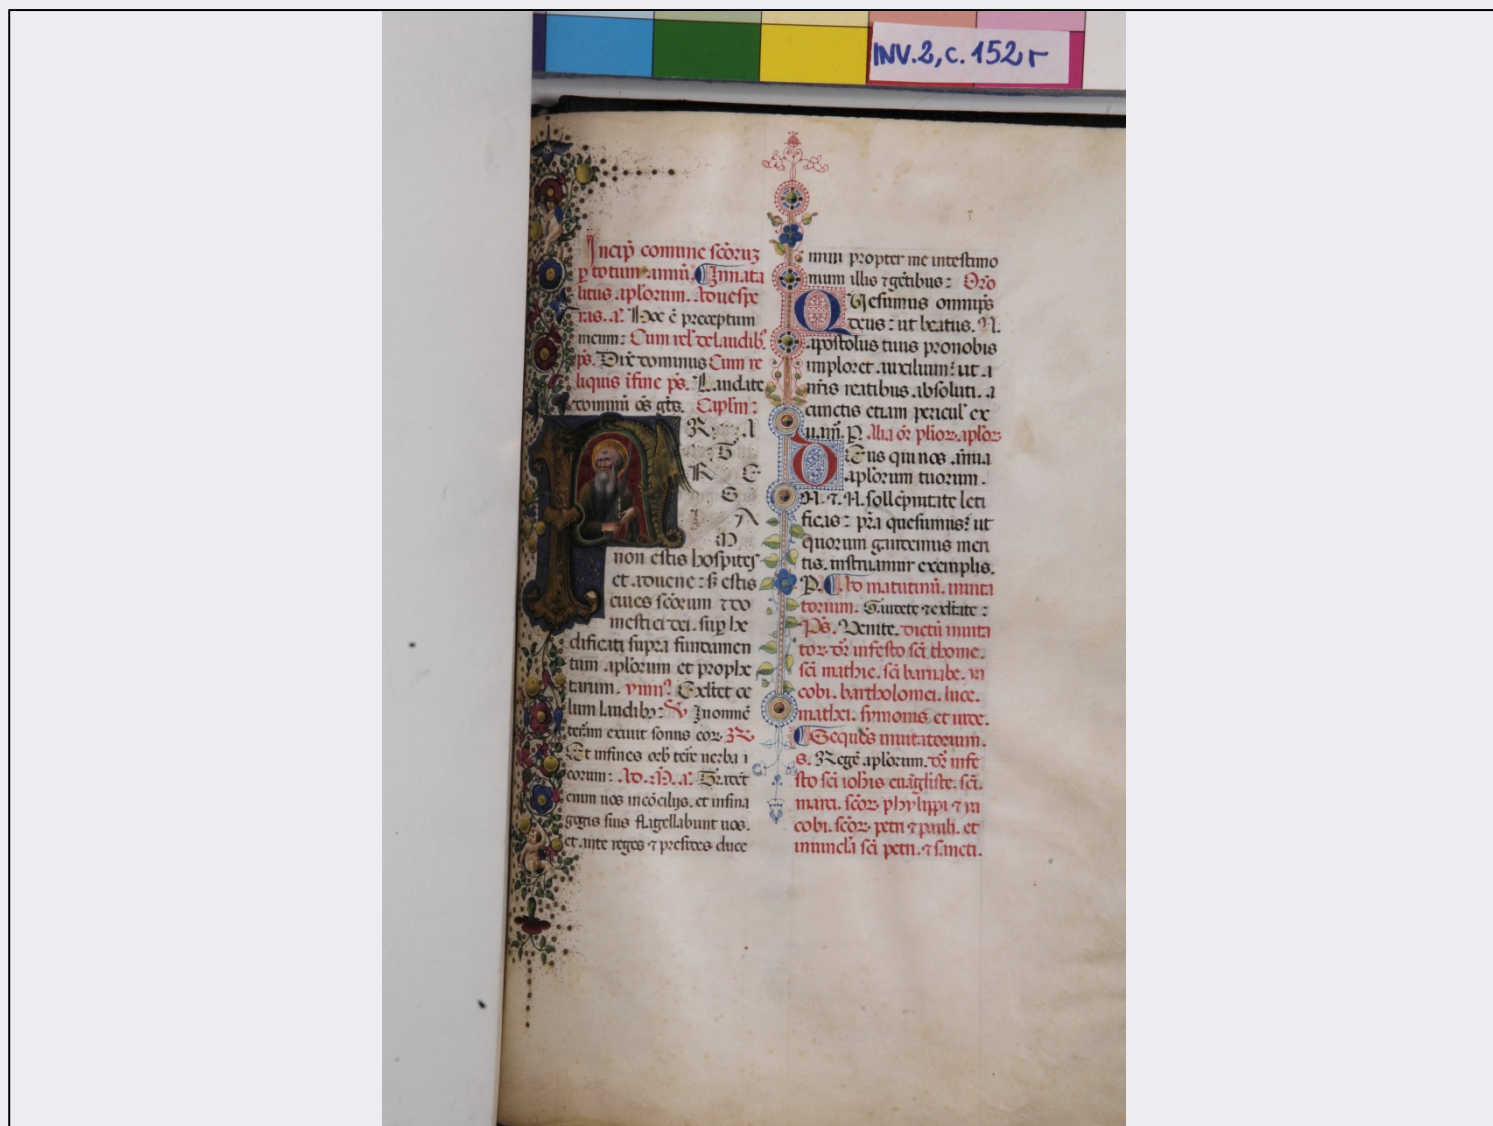 INV.2, c. 152r
Incip̄ comune scōruʒ
ꝑ totum annū. In nata
litiis apl̄orum. ad uesꝑe
ras. a. Hoc ē preceptum
meum: Cum rel̄ de laudib.
ps̄. Dix̄ dominus Cum re
liquis ī fine ps̄. Laudate
dominū oēs gēts. Capl̄m:
FRA
T
RE
S
IA
M
non estis hospites
et aduene: s̄ estis
ciues scōrum ⁊ do
mestici dei. suꝑ he
dificati supra fundamen
tum apl̄orum et prophe
tarum. ymn9. Exl̄tet ce
lum laudibꝫ. ℣ In omnē
terram exiuit sonus eoꝝ. ℟
Et in fines orb̄ terre uerba
eorum: Ad. M̄. a. Tradēt
enim uos in cōcilijs. et in sina
gogis suis flagellabunt uos.
et ante reges ⁊ presides duce
mini propter me in testimo
nium illis ⁊ gētibus: Orō
Quesumus omnip̄s
deus: ut beatus. N.
apostolus tuus pro nobis
imploret auxilium: ut a
nr̄is reatibus absoluti. a
cunctis etiam pericul̄ ex
uam̄. P. Alia or̄ plioꝝ apl̄oꝝ
Deus qui nos annua
apl̄orum tuorum.
N. ⁊. N. sollēpnitate leti
ficas: pr̄a quesumus: ut
quorum gaudemus meri
tis. instruamur exemplis.
P. Ad matutinū. inuita
torium. Gaudete ⁊ exl̄tate:
Ps̄. Venite. dictū inuita
toꝝ dr̄ in festo sc̄i thome.
sc̄i mathie. sc̄i barnabe. ia
cobi. bartholomei. luce.
mathei. symonis et iude.
Sequēs inuitatorium.
s. Regē apl̄orum. dr̄ in fe
sto sc̄i ioh̄is euāgliste. sc̄i
marci. scōꝝ phylippi ⁊ ia
cobi. scōꝝ petri ⁊ pauli. et
in uincl̄a sc̄i petri. ⁊ sancti.